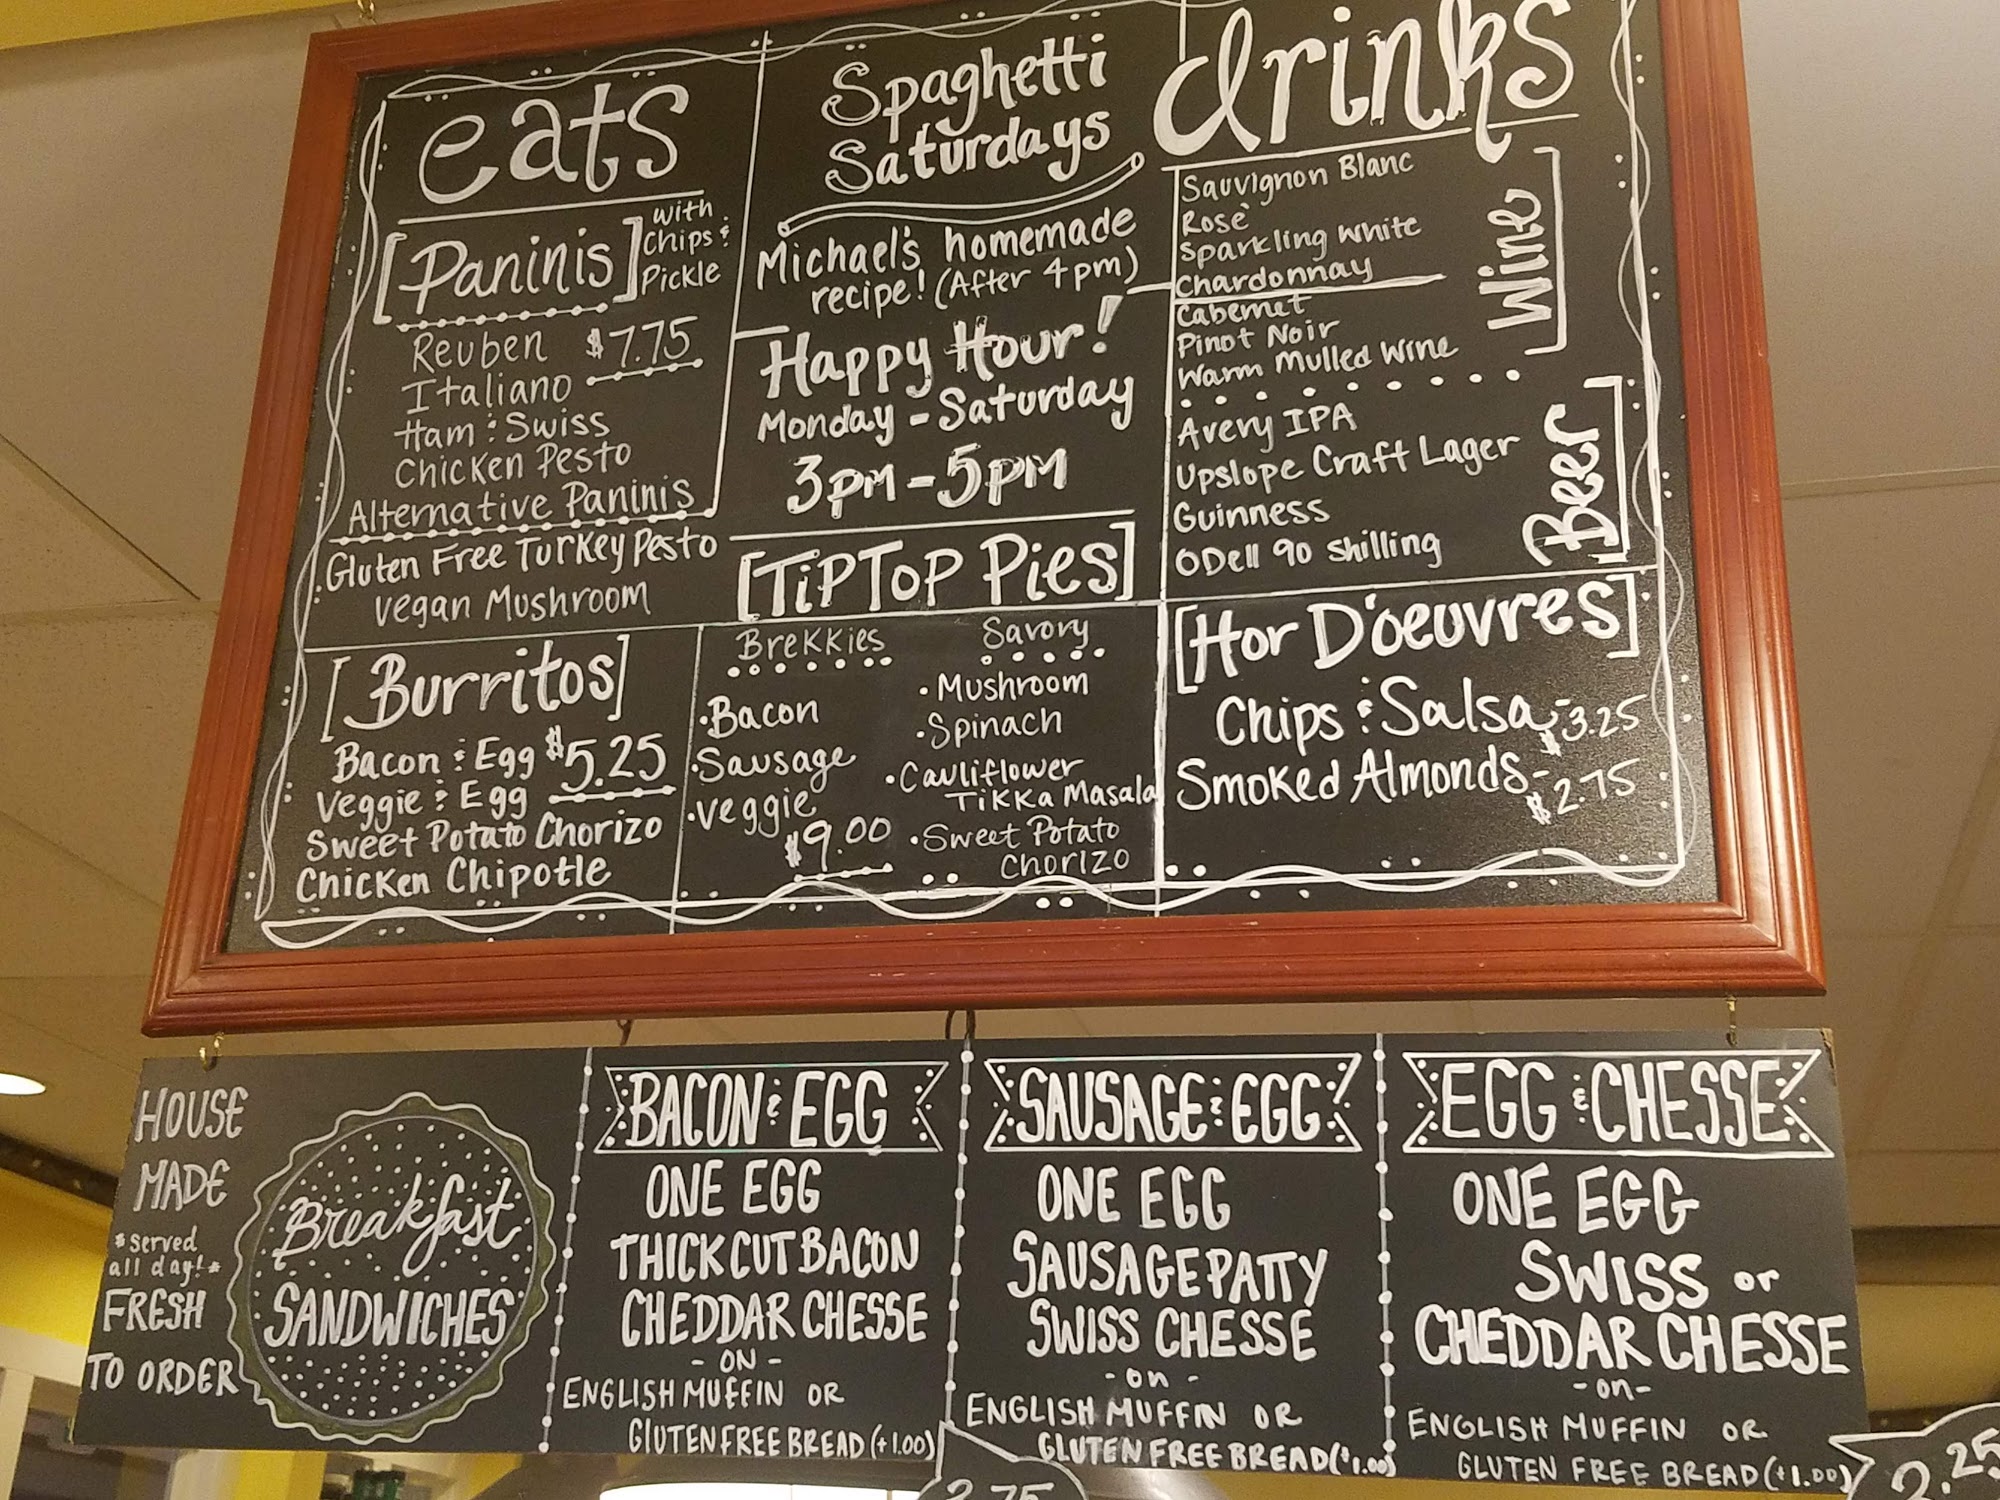 eats
[Paninis] with Chips & Pickle
Reuben $7.75
Italiano
Ham & Swiss
Chicken Pesto
Alternative Paninis
Gluten Free Turkey Pesto
Vegan Mushroom
[Burritos]
Bacon & Egg $5.25
Veggie & Egg
Sweet Potato Chorizo
Chicken Chipotle
Spaghetti
Saturdays
Michael's homemade
recipe! (After 4pm)
Happy Hour!
Monday - Saturday
3pm - 5pm
[TipTop Pies]
Brekkies
• Bacon
• Sausage
• Veggie
$9.00
Savory
• Mushroom
• Spinach
• Cauliflower
Tikka Masala
• Sweet Potato
Chorizo
drinks
Wine
Sauvignon Blanc
Rosè
Sparkling White
Chardonnay
Cabernet
Pinot Noir
Warm Mulled Wine
Beer
Avery IPA
Upslope Craft Lager
Guinness
ODell 90 Shilling
[Hor D'oeuvres]
Chips & Salsa - $3.25
Smoked Almonds - $2.75
HOUSE
MADE
*served
all day!*
FRESH
TO ORDER
Breakfast
SANDWICHES
BACON & EGG
ONE EGG
THICK CUT BACON
CHEDDAR CHESSE
- ON -
ENGLISH MUFFIN OR
GLUTEN FREE BREAD (+1.00)
SAUSAGE & EGG
ONE EGG
SAUSAGE PATTY
SWISS CHESSE
- on -
ENGLISH MUFFIN OR
GLUTEN FREE BREAD (+1.00)
2.75
EGG & CHESSE
ONE EGG
SWISS or
CHEDDAR CHESSE
- on -
ENGLISH MUFFIN OR
GLUTEN FREE BREAD (+1.00)
2.25